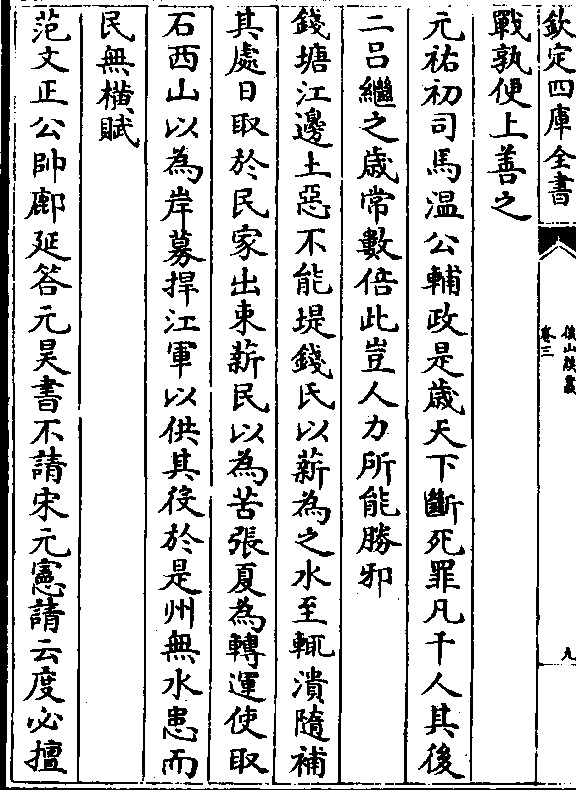 欽定四庫全書
儼山外集
卷三
九
戰孰便上善之
元祐初司馬温公輔政是歲天下斷死罪凡千人其後
二吕繼之歲常數倍此豈人力所能勝邪
錢塘江邊土惡不能堤錢氏以薪為之水至輒潰隨補
其處日取於民家出束薪民以為苦張夏為轉運使取
石西山以為岸募捍江軍以供其役於是州無水患而
民無橫賦
范文正公帥鄜延答元昊書不請宋元憲請云度必擅